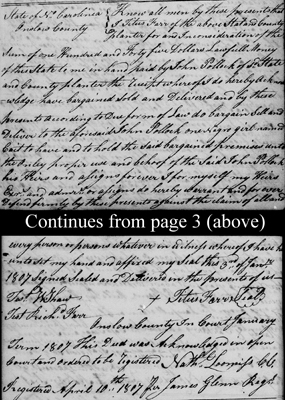 State of No. Carolina } Know all men by these presents that
Onslow County } I Titus Farr of the above State & County
Planter for and Inconsideration of the
Sum of one Hundred and Forty five Dollars Lawfull Money
of this State to me in hand paid by John Pollock of sd. State
and County planter the receipt whereof I do hereby Ack
nowledge have bargained Sold and Delivered and by these
presents according to Due form of Law do bargain Sell and
Deliver to the aforesaid John Pollock one negro girl named
Cait to have and to hold the said bargained premises unto
the only proper use and behoof of the Said John Pollock
his Heirs and asigns forever I for myself my Heirs
Exrs. and admrs. or asigns do hereby warrant and forever
Defend firmly by these presents against the claim of all and
Continues from page 3 (above)
every person or persons whatever in witness whereof I have here
unto set my hand and affixed my Seal this 3rd. of Jany.
1807 Signed Sealed and Delivered in the presents of us
Test W Shaw + Titus Farr (Seal)
Test Richd. Farr
Onslow County In Court January
Term 1807 This Deed was Acknowledged in open
Court and ordered to be registered Nathl. Loomis CC
Registered April 10th 1807 Per James Glenn Regr.